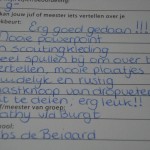 g
kan jouw juf of meester iets vertellen over je
keurt:
Erg goed gedaan!!!
Mooie powerpoint
n scoutingkleding
veel spullen bij om over te
vertellen, mooie plaatjes
uidelijk en rustig
astknoop van dropveter
t te delen, erg leuk!!
ester van groep:
athy v/d burgt
ool:
bs de Beiaard